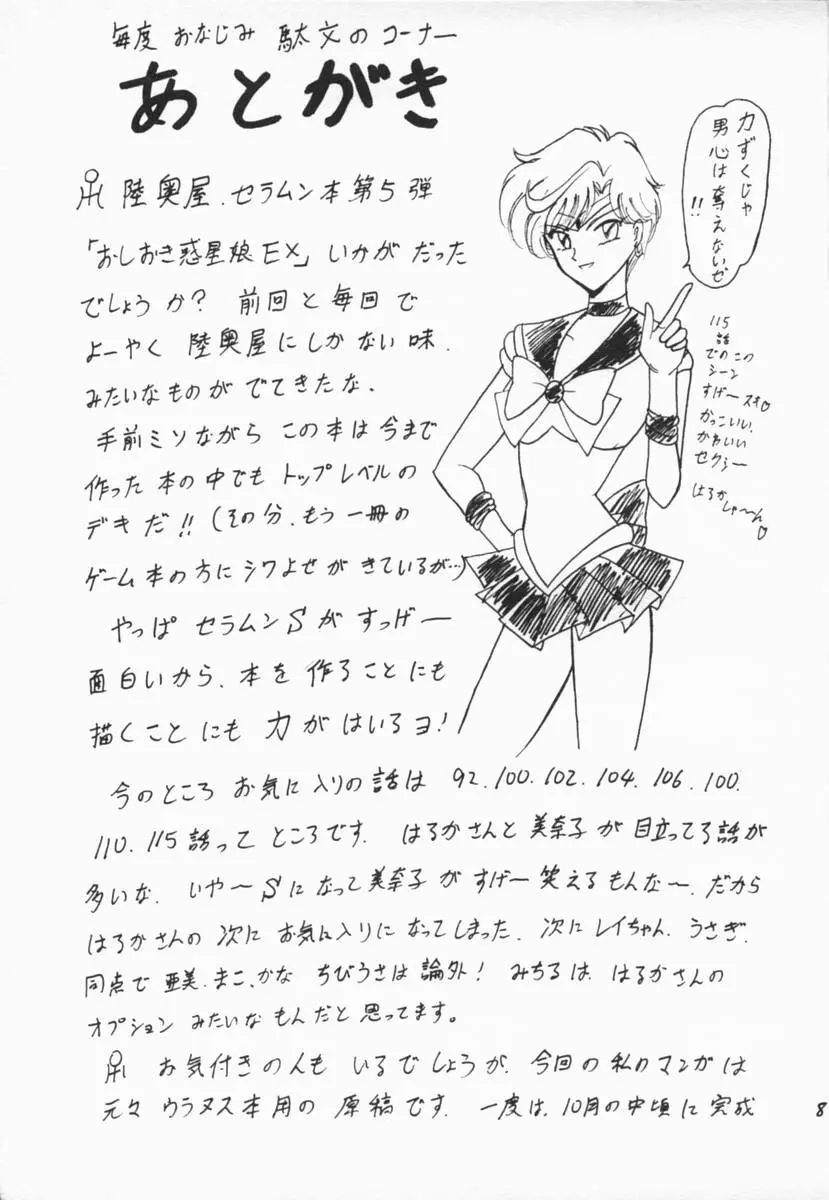 毎度 おなじみ 駄文のコーナー
あとがき
陸奥屋、セラムン本第5弾
「おしおき惑星娘EX」いかがだった
でしょうか? 前回と毎回で
よーやく 陸奥屋にしかない味、
みたいなものがでてきたな、
手前ミソながら この本は今まで
作った本の中でもトップレベルの
デキだ!!(その分、もう一冊の
ゲーム本の方にシワよせがきているが…)
やっぱ セラムンSがすっげー
面白いから、本を作ることにも
描くことにも力がはいるヨ!
今のところ お気に入りの話は 92.100.102.104.106.100.
110.115話って ところです. はるかさんと美奈子が目立ってる話が
多いな. いや〜Sになって美奈子が すげー笑えるもんな〜.だから
はるかさんの次に お気に入りになってしまった. 次にレイちゃん. うさぎ.
同点で 亜美.まこ、かな ちびうさは論外! みちるは、はるかさんの
オプション みたいなもんだと思ってます。
お気付きの人も いるでしょうが、今回の私のマンガは
元々ウラヌス本用の 原稿です. 一度は、10月の中頃に完成
力ずくじゃ
男心は奪えないぜ
!!
115
話
でのこの
シーン
すげースキ♡
かっこいい.
かわいい
セクシー
はるか
しゃ〜ん♡
8